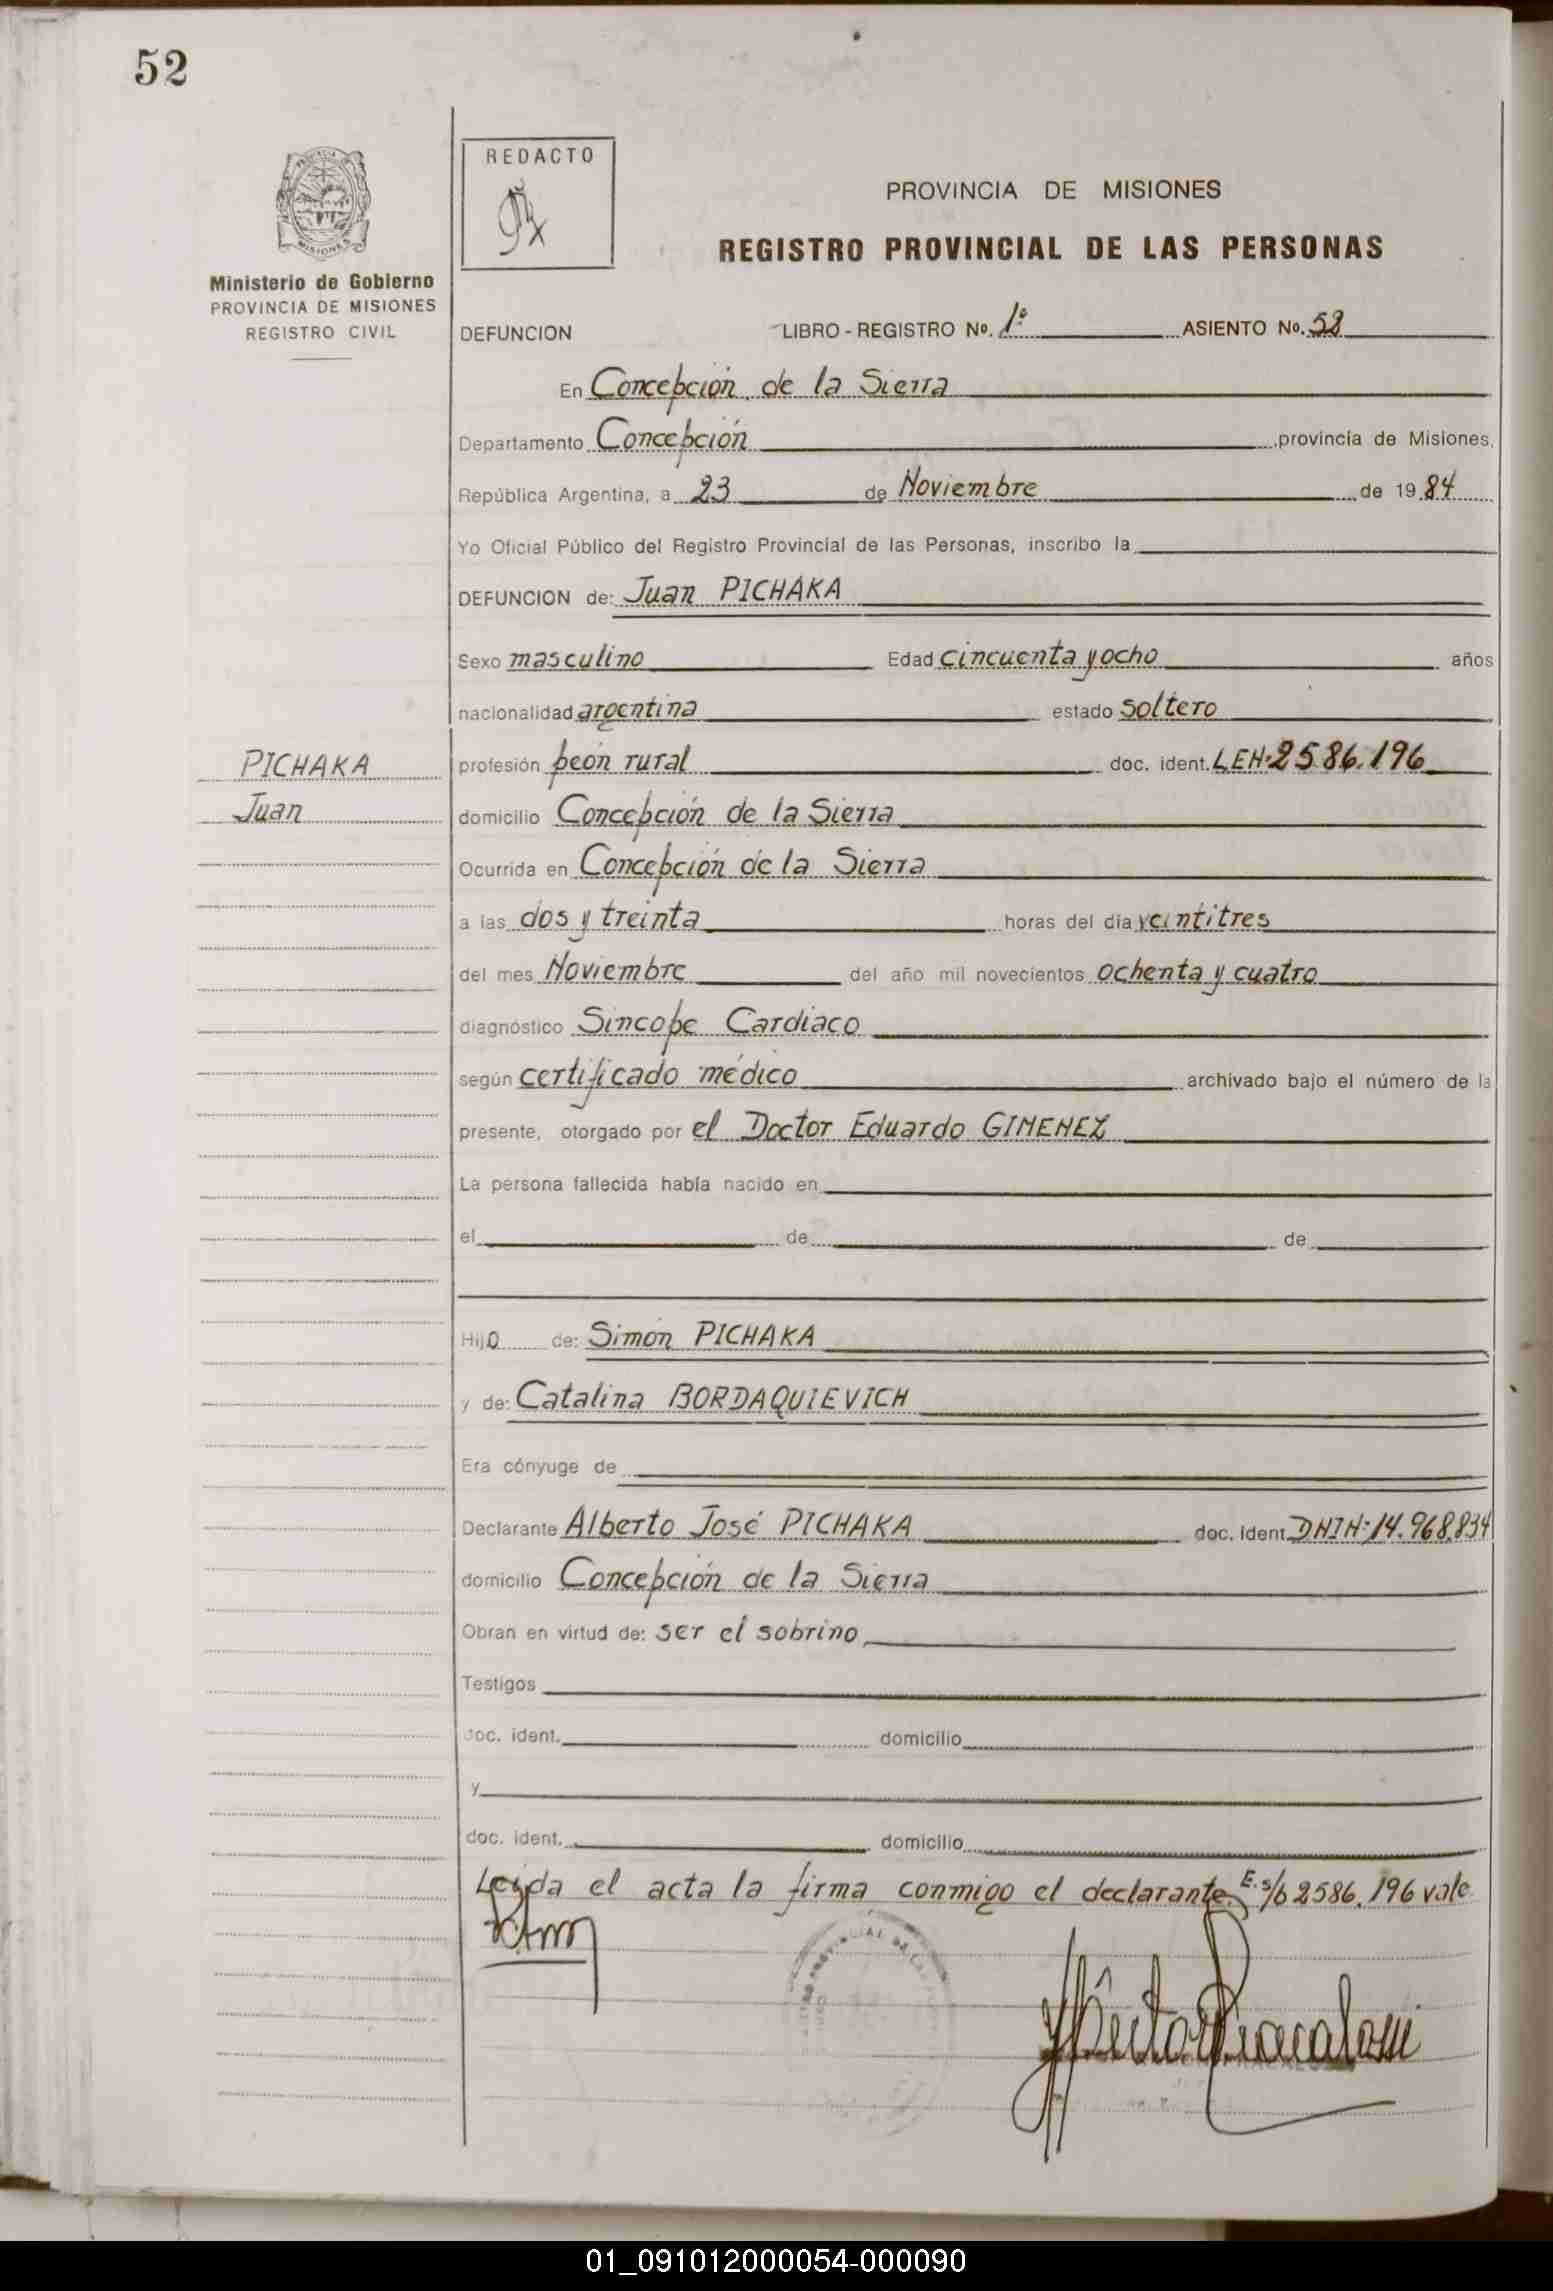 52
REDACTO
PROVINCIA DE MISIONES
REGISTRO PROVINCIAL DE LAS PERSONAS
Ministerio de Gobierno
PROVINCIA DE MISIONES
REGISTRO CIVIL
DEFUNCION LIBRO - REGISTRO No. 1º ASIENTO No. 52
En Concepción de la Sierra
Departamento Concepción provincia de Misiones,
República Argentina, a 23 de Noviembre de 1984
Yo Oficial Público del Registro Provincial de las Personas, inscribo la
DEFUNCION de: Juan PICHAKA
Sexo masculino Edad cincuenta y ocho años
nacionalidad argentina estado soltero
PICHAKA
Juan
profesión peón rural doc. ident. LEN: 2586.196
domicilio Concepción de la Sierra
Ocurrida en Concepción de la Sierra
a las dos y treinta horas del día veintitres
del mes Noviembre del año mil novecientos ochenta y cuatro
diagnóstico Sincope Cardiaco
según certificado médico archivado bajo el número de la
presente, otorgado por el Doctor Eduardo GIMENEZ
La persona fallecida había nacido en
el de de
Hijo de: Simón PICHAKA
y de: Catalina BORDAQUIEVICH
Era cónyuge de
Declarante Alberto José PICHAKA doc. ident DNIN: 14.968.834
domicilio Concepción de la Sierra
Obran en virtud de: ser el sobrino
Testigos
doc. ident. domicilio
y
doc. ident. domicilio
Leída el acta la firma conmigo el declarante. E. s/b 2586.196 vale.
01_091012000054-000090